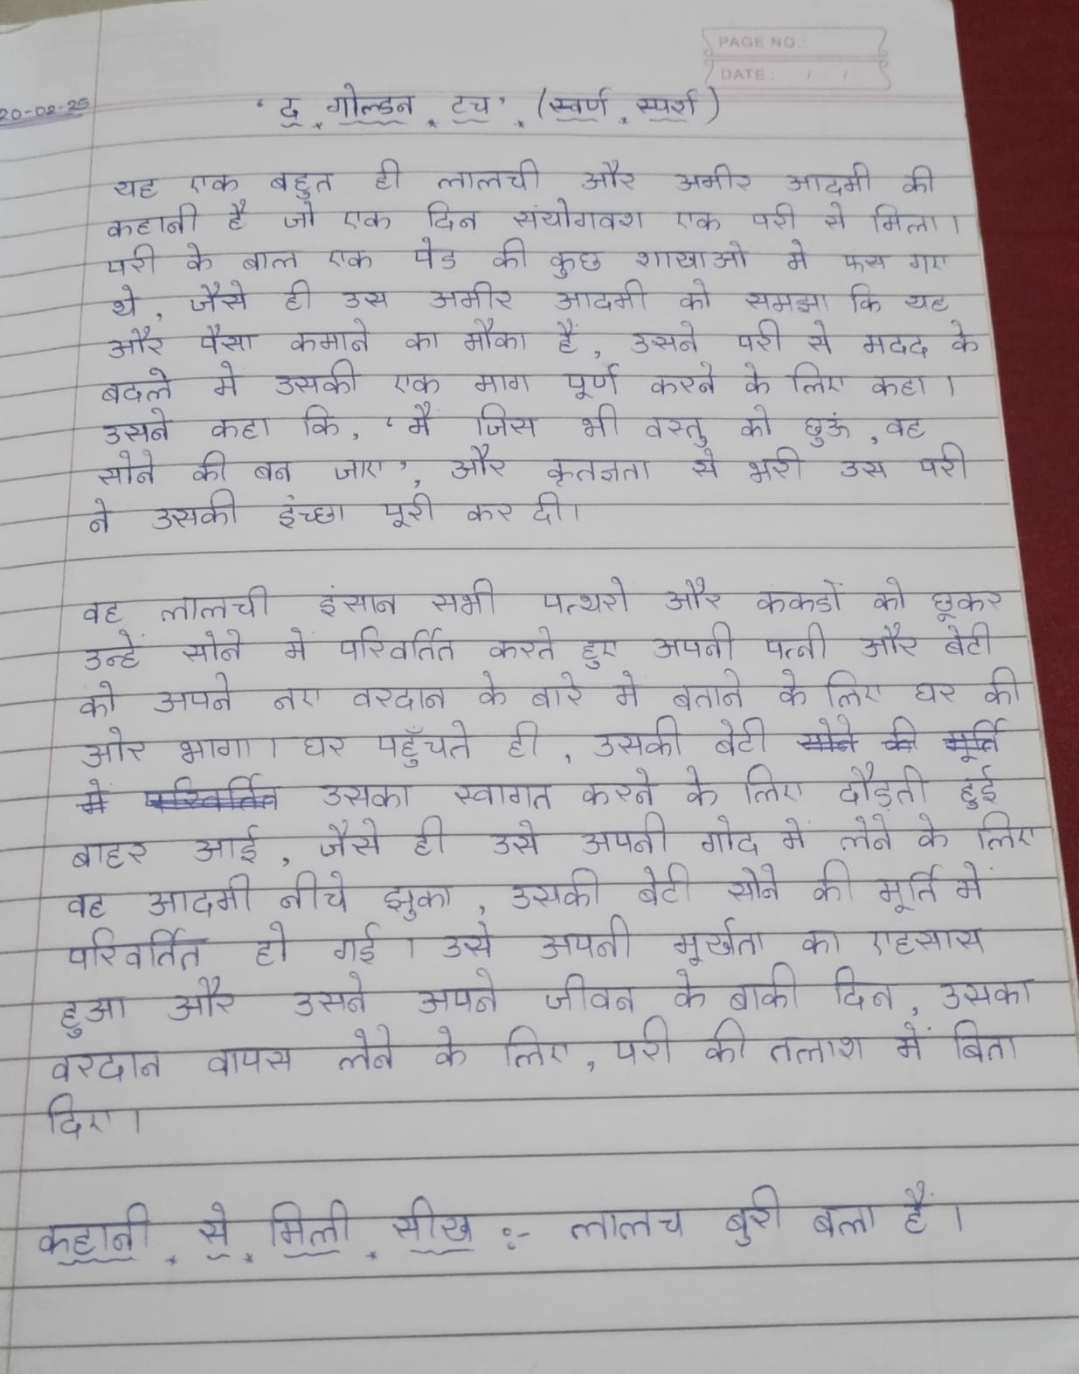 PAGE NO.:
DATE: / /
20-02-25
'द गोल्डन टच' (स्वर्ण स्पर्श)
यह एक बहुत ही लालची और अमीर आदमी की
कहानी है जो एक दिन संयोगवश एक परी से मिला।
परी के बाल एक पेड की कुछ शाखाओ मे फस गए
थे, जैसे ही उस अमीर आदमी को समझा कि यह
और पैसा कमाने का मौका हैं, उसने परी से मदद के
बदले मे उसकी एक माग पूर्ण करने के लिए कहा।
उसने कहा कि, 'मैं जिस भी वस्तु को छुऊं, वह
सोने की बन जाए', और कृतज्ञता से भरी उस परी
ने उसकी इंच्छा पूरी कर दी।
वह लालची इंसान सभी पत्थरो और ककडों को छूकर
उन्हें सोने में परिवर्तित करते हुए अपनी पत्नी और बेटी
को अपने नए वरदान के बारे मे बताने के लिए घर की
ओर भागा। घर पहुँचते ही, उसकी बेटी सोने की मूर्ति
में परिवर्तित उसका स्वागत करने के लिए दौड़ती हुई
बाहर आई, जैसे ही उसे अपनी गोद में लेने के लिए
वह आदमी नीचे झुका, उसकी बेटी सोने की मूर्ति में
परिवर्तित हो गई। उसे अपनी मूर्खता का एहसास
हुआ और उसने अपने जीवन के बाकी दिन, उसका
वरदान वापस लेने के लिए, परी की तलाश में बिता
दिए।
कहानी से मिली सीख :- लालच बुरी बला है।